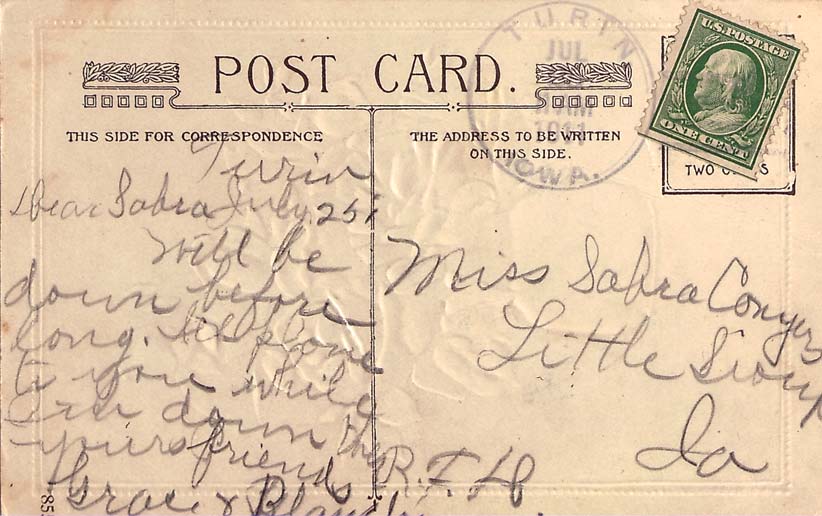 POST CARD.
THIS SIDE FOR CORRESPONDENCE
THE ADDRESS TO BE WRITTEN
ON THIS SIDE.
TURIN
JUL
AM
1911
IOWA.
U.S. POSTAGE
ONE CENT
TWO
Turin
Dear Sabra July 25,
Will be
down before
long.
phone
to you while
I am down
yours friends
Grace &
Miss Sabra Conyers
Little Sioux
Ia
R.F.D